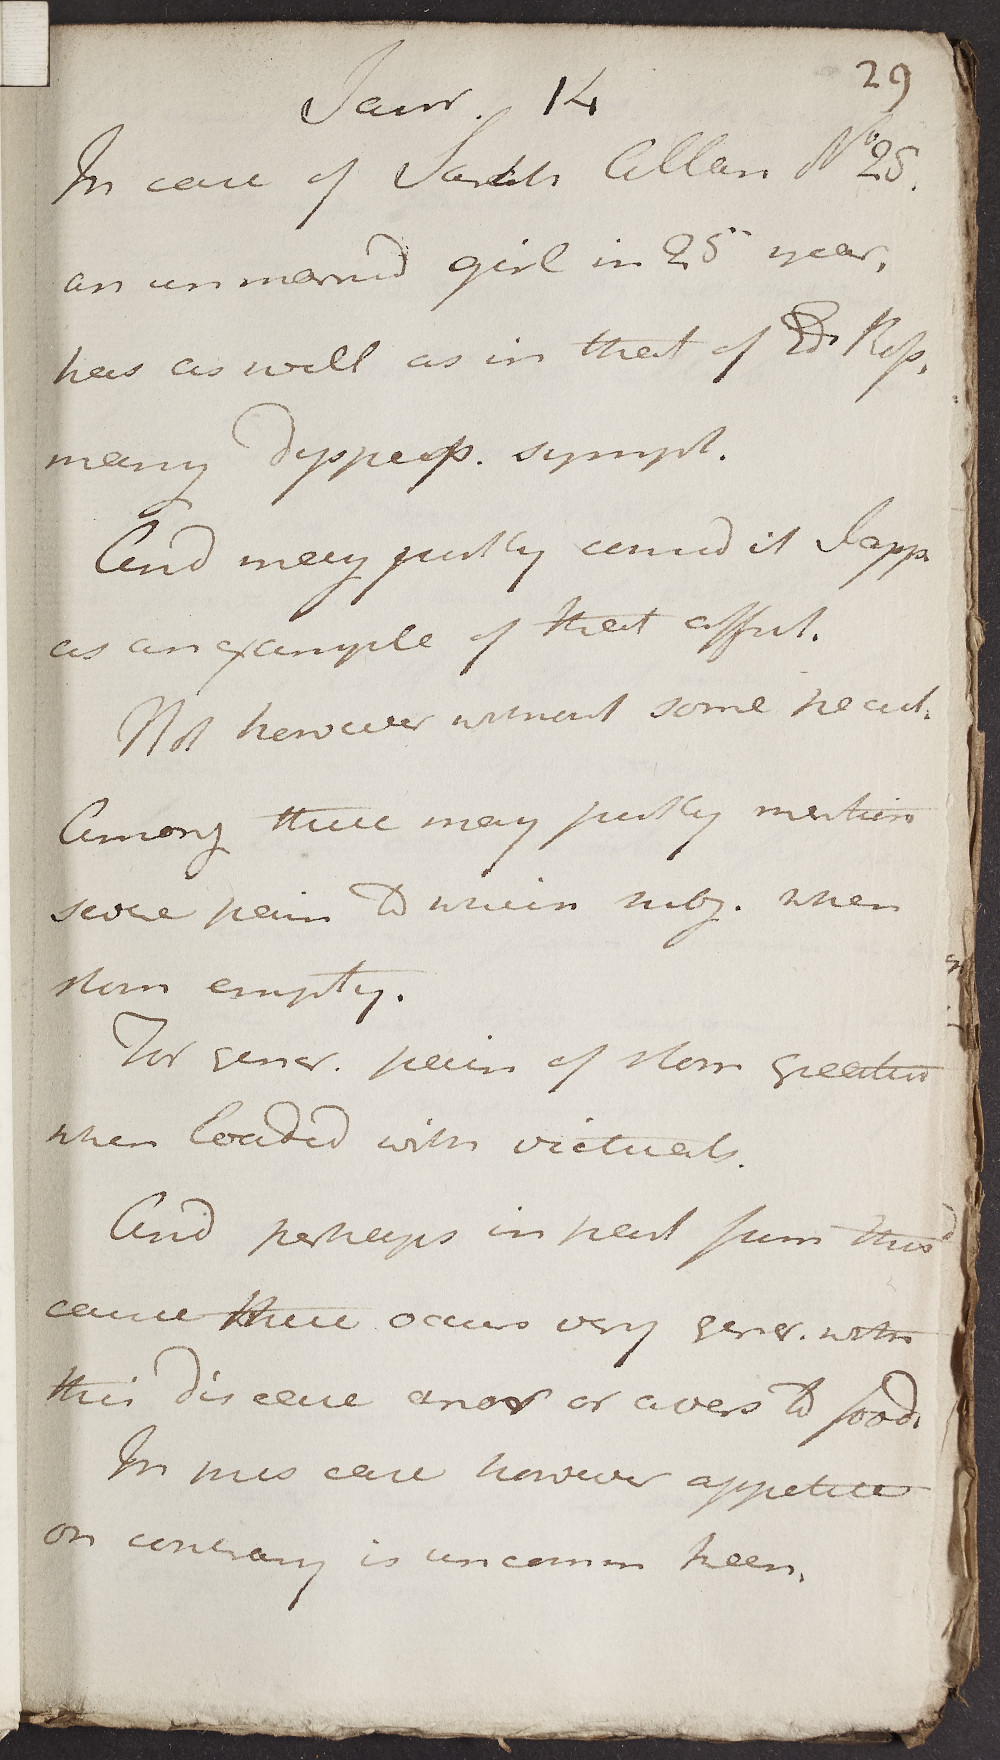 29
Janr. 14
In case of Sarah Allan No 25.
an unmarrid girl in 25 year,
has as well as in that of Ed Ross,
many dyspeps. sympt.
And may justly consid it I app
as an example of that affect.
Not however without some pecul.
Among these may justly mention
severe pain to which subj. when
stom empty.
For gener. pain of stom greatest
when loaded with victuals.
And perhaps in part from this
cause there occurs very gener. with
this disease anor or avers to food.
In pres case however appetite
on contrary is uncomm keen.